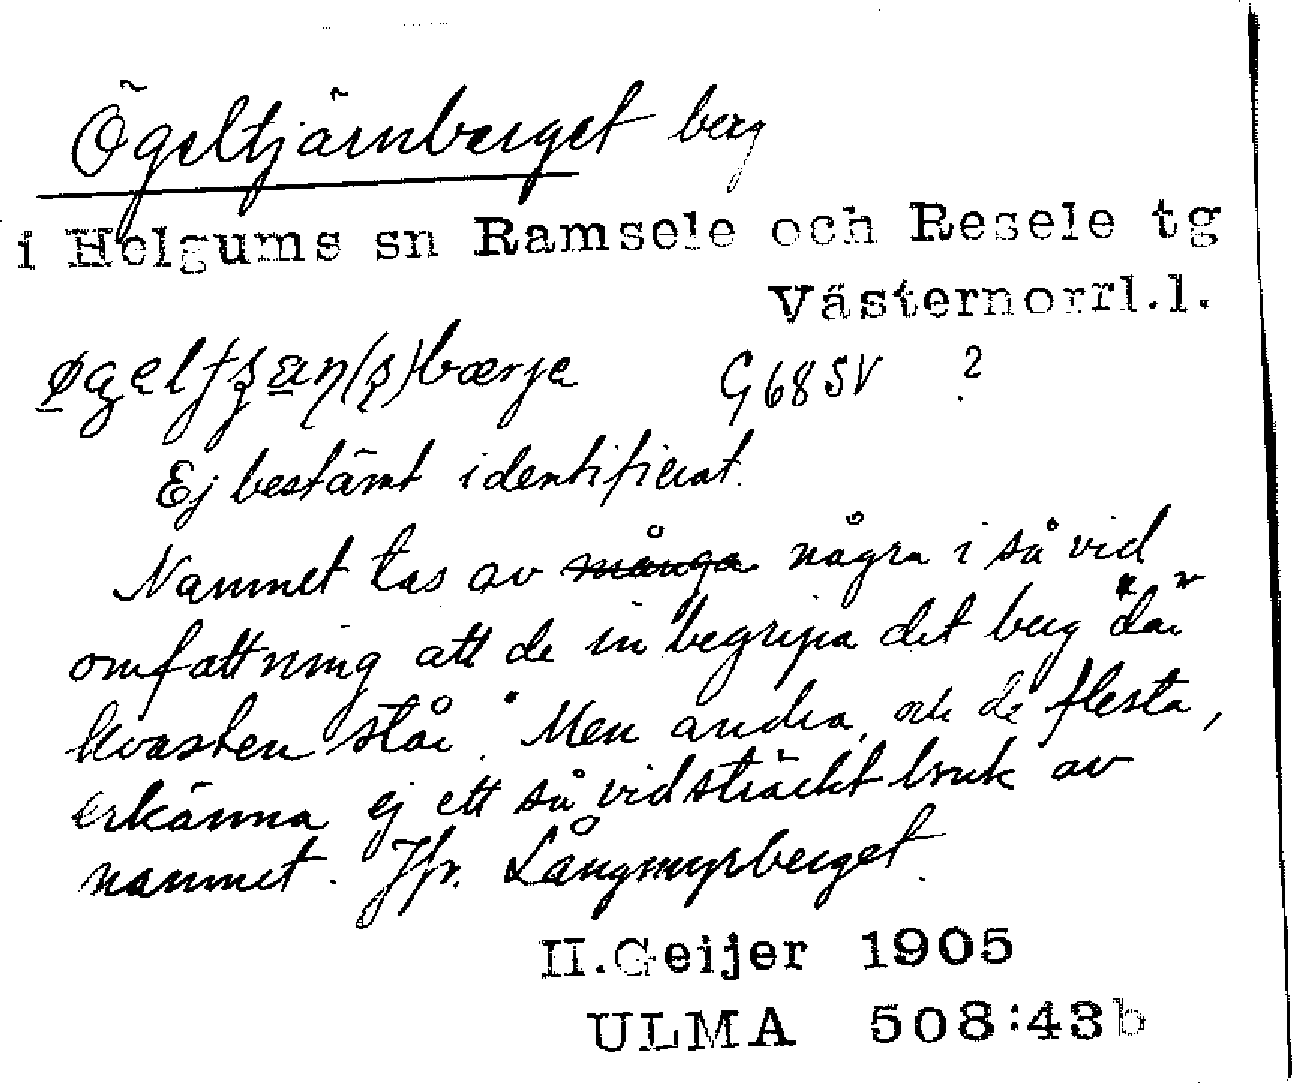 Ögeltjärnberget berg
i Helgums sn Ramsele och Resele tg
Västernorrl.l.
G 68 SV ?
Ej bestämt identifierat.
Namnet tas av många några i så vid
omfattning att de inbegripa det berg "där
kvasten står." Men andra, och de flesta,
erkänna ej ett så vidsträckt bruk av
namnet. Jfr. Långmyrberget.
H.Geijer 1905
ULMA 508:43b